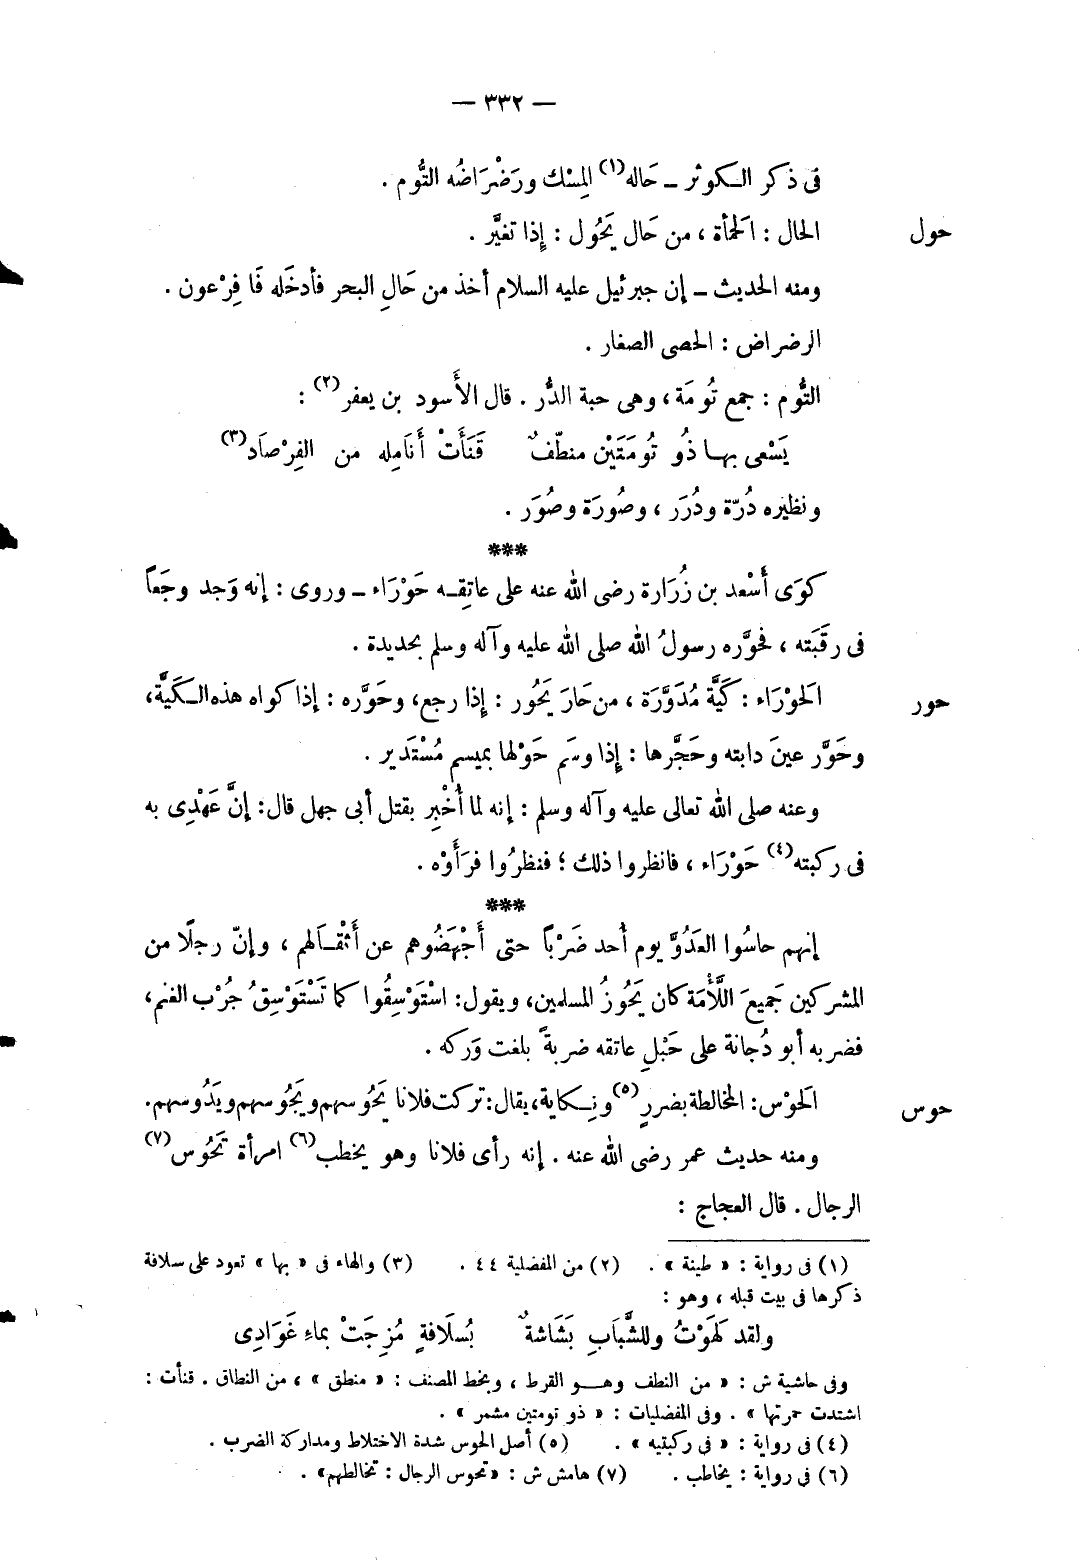 — ٣٣٢ —
فى ذكر الكوثر – حَاله(١) المِسْك ورَضْرَاضُه التُّوم .
حول
الحال : الَحْمأة ، من حَال يَحُول : إِذا تغيَّر .
ومنه الحديث – إن جبرئيل عليه السلام أخذ من حَالِ البحر فأدخَله فَا فِرْعون .
الرضراض : الحصى الصغار .
التُّوم : جمع تُومَة ، وهى حبة الدُّر . قال الأَسود بن يعفر(٢) :
يَسْعى بهـا ذُو تُومَتَيْن منطّفٌ قَنَأَتْ أَنَامِله من الفِرْصَاد(٣)
ونظيره دُرّة ودُرَر ، وصُورَة وصُوَر .
***
كوَى أَسْعد بن زُرَارة رضى الله عنه على عاتِقِـه حَوْرَاء – وروى : إنه وَجد وجَعاً
فى رقَبَته ، فحوَّره رسولُ الله صلى الله عليه وآله وسلم بحديدة .
حور
الَحوْرَاء : كَيَّة مُدَوَّرَة ، من حَارَ يَحُور : إِذا رجع، وحَوَّره : إذا كواه هذه الـكَيَّة،
وحَوَّر عينَ دابته وحَجَّرها : إِذا وسَم حَوْلها بميسم مُسْتَدير .
وعنه صلى الله تعالى عليه وآله وسلم : إنه لما أُخْبِر بقتل أبى جهل قال: إنَّ عَهْدِى به
فى ركبته(٤) حَوْرَاء ، فانظروا ذلك ؛ فنظرُوا فرَأَوْه .
***
إنهم حاسُوا العَدُوَّ يوم أُحد ضَرْبًا حتى أَجْهَضُوهم عن أَثْقـالهم ، وإنّ رجلًا من
المشركين جَميعَ اللَّأْمَة كان يَحُوزُ المسلمين، ويقول: اسْتَوْسِقُوا كما تَسْتَوْسِقُ جُرْب الغنم،
فضربه أبو دُجانة على حَبْلِ عاتقه ضربةً بلغت وَركه .
حوس
الَحوْس: المخالطة بضررٍ(٥) ونِـكاية، يقال: تركت فلانا يَحُوسهم ويَجُوسهم ويَدُوسهم.
ومنه حديث عمر رضى الله عنه . إنه رأى فلانا وهو يخطب(٦) امرأة تَحُوس(٧)
الرجال . قال العجاج :
(١) فى رواية : « طينة » . (٢) من المفضلية ٤٤ . (٣) والهاء فى « بها » تعود على سلافة
ذكرها فى بيت قبله ، وهو :
ولقد لَهَوْتُ وللشَّبَابِ بَشَاشةٌ بُسلَافةٍ مُزِجَتْ بماءِ غَوَادِى
وفى حاشية ش : « من النطف وهــو القرط ، وبخط المصنف : « منطق » ، من النطاق . قنأت :
اشتدت حمرتها » . وفى المفضليات : « ذو تومتين مشمر » .
(٤) فى رواية : « فى ركبتيه » . (٥) أصل الحوس شدة الاختلاط ومداركة الضرب .
(٦) فى رواية : يخاطب . (٧) هامش ش : «تحوس الرجال : تخالطهم» .